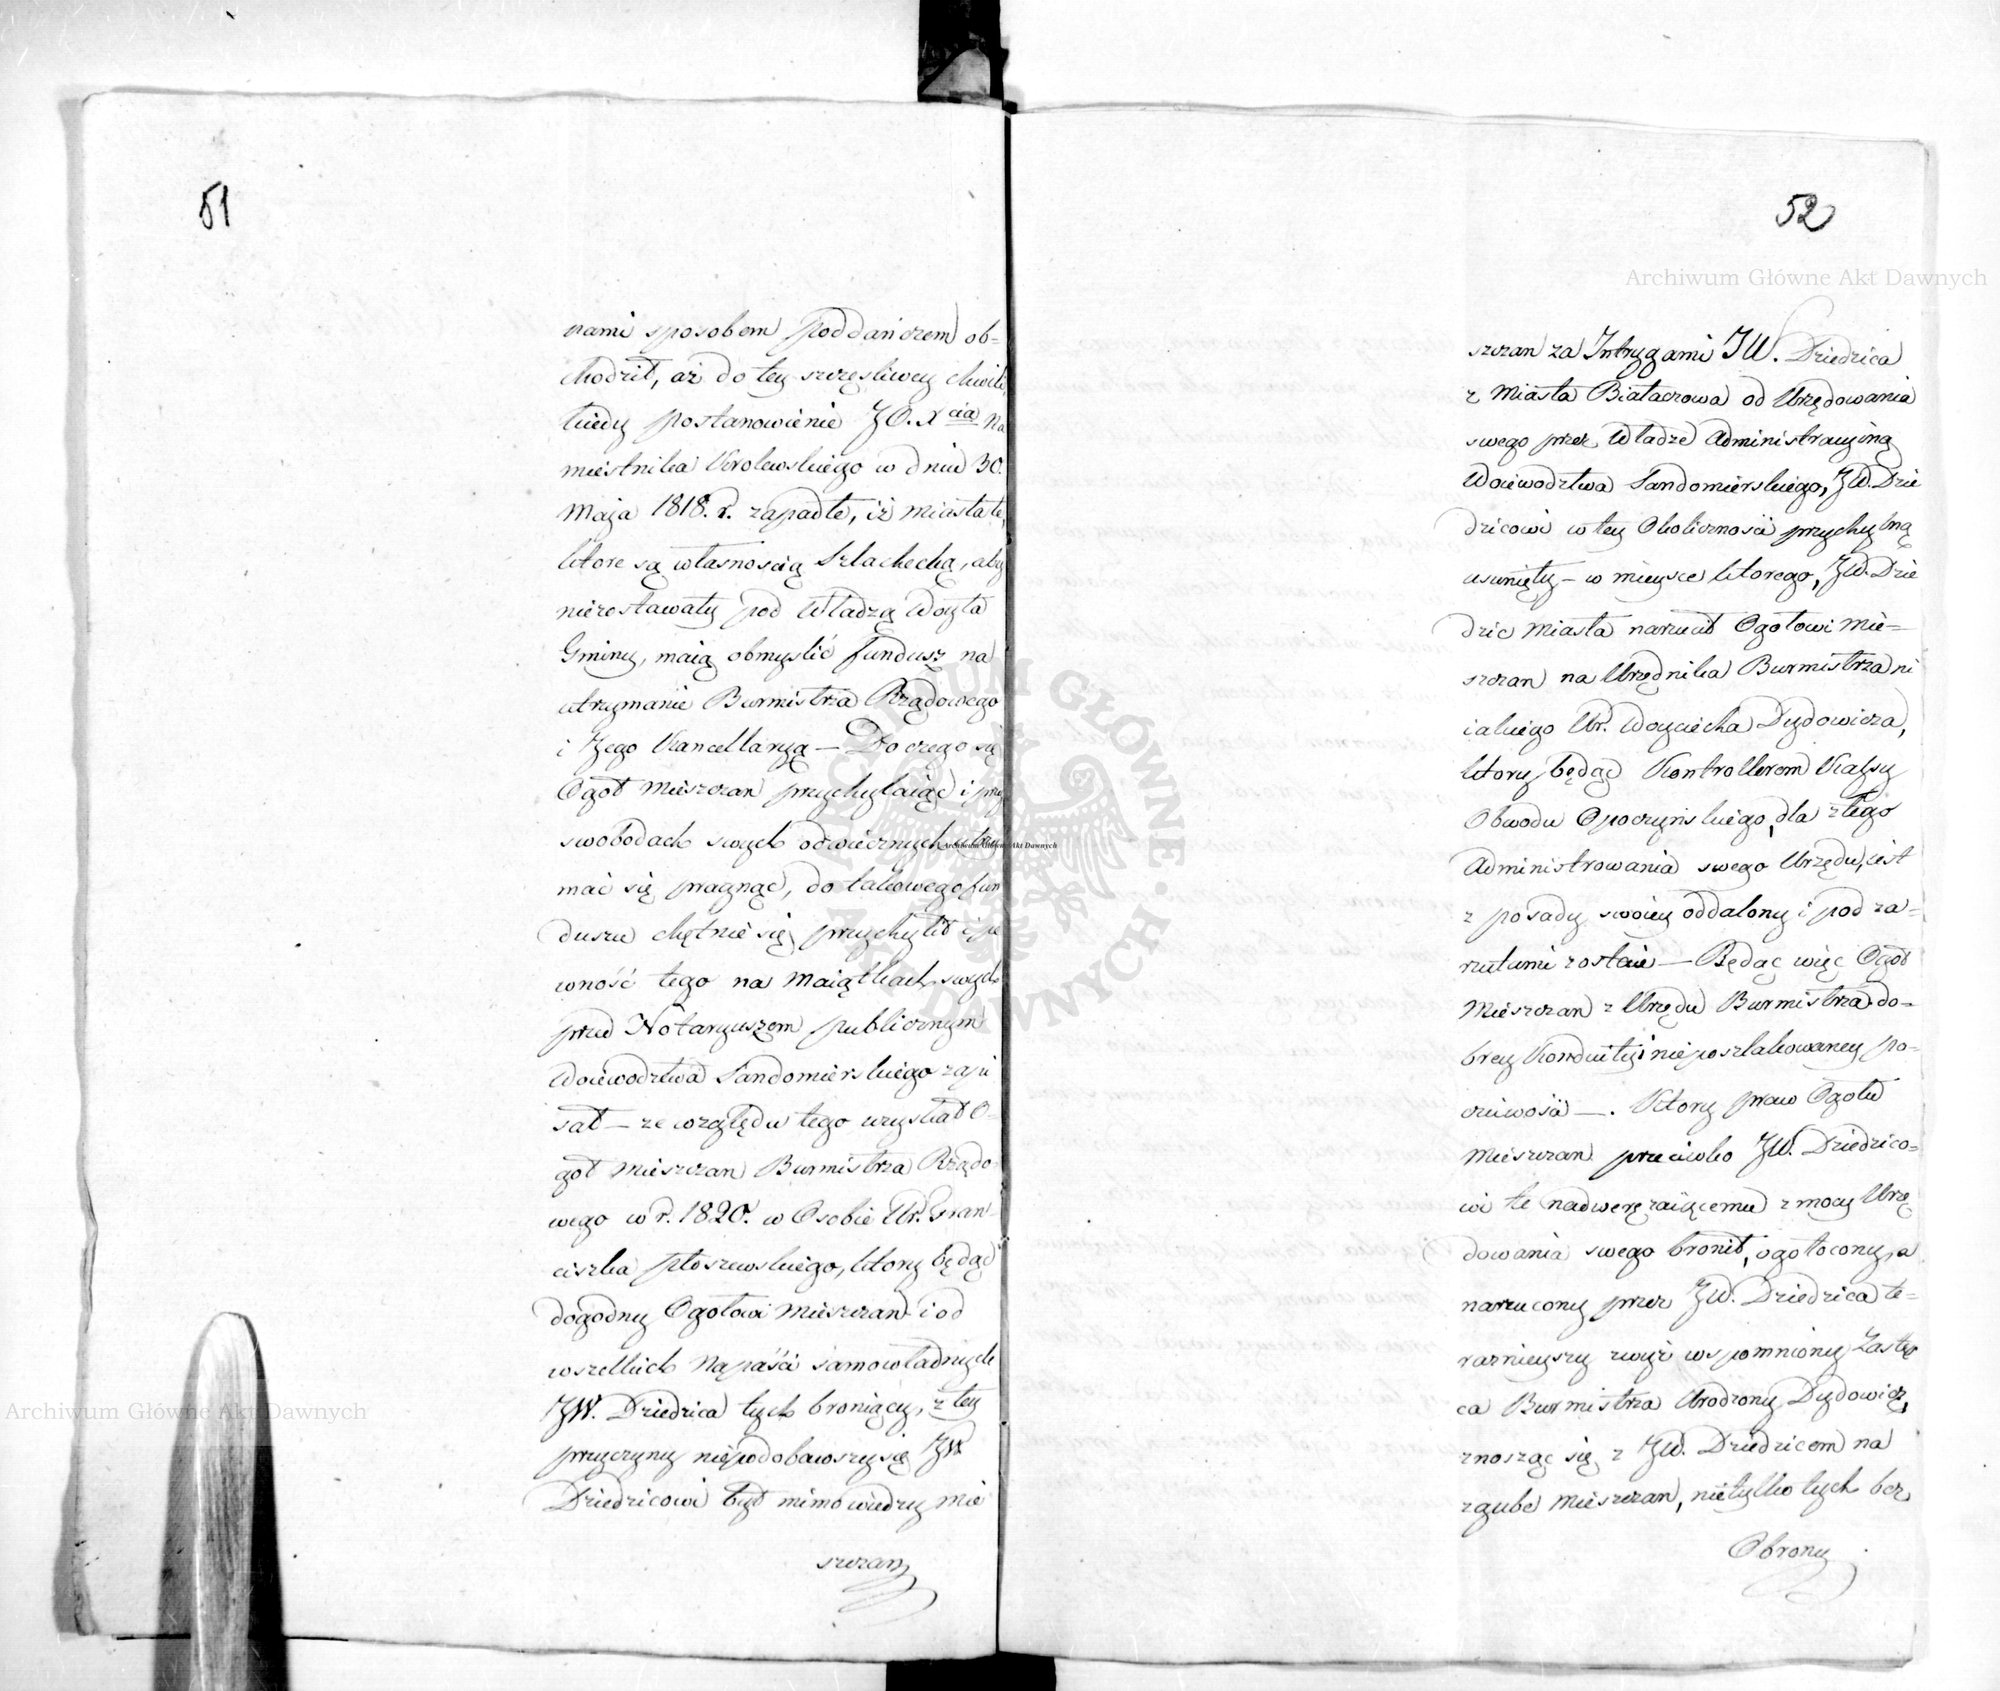 51
nami sposobem poddańczem ob=
chodził, aż do tey szczęsliwey chwili,
kiedy postanowienie JO. Xcia Na
miestnika Krolewskiego w dniu 30.
Maja 1818. r. zapadłe, iż miasta te,
ktore są własnoscią Szlachecką, aby
niezostawały pod Władzą Woyta
Gminy, maią obmyslić fundusz na
utrzymanie Burmistrza Rządowego
i Jego Kancellaryą — Do czego się
Ogoł Mieszczan przychylaiąc i przy
swobodach swych odwiecznych utrzy
mać się pragnąc, do takowego fun
duszu chętnie się przychylił i pe
wność tego na Maiątkach swych
przed Notaryuszem publicznym
Woiewodztwa Sandomierskiego zapi
sał — ze względu tego uzyskał O-
goł Mieszczan Burmistrza Rządo-
wego w r. 1820. w Osobie Ur. Fran-
ciszka Płoszewskiego, ktory będąc
dogodny Ogołowi Mieszczan i od
wszelkich Napaści samowładnych
JW. Dziedzica tych broniący, z tey
przyczyny niepodobawszy się JW
Dziedzicowi był mimo wiedzy Mie
szczan
52
szczan za Intrygami JW. Dziedzica
z Miasta Białaczowa od Urzędowania
swego przez Władze Administracyiną
Woiewodztwa Sandomierskiego, JW. Dzie
dzicowi w tey Okoliczności przychylną
usunięty — w mieysce ktorego, JW. Dzie
dzic Miasta narzucił Ogołowi Mie=
szczan na Urzędnika Burmistrza ni
iakiego Ur. Woyciecha Dydowicza,
ktory będąc Kontrollerem Kassy
Obwodu Opoczyńskiego, dla złego
Administrowania swego Urzędu, iest
z posady swoiey oddalony i pod za=
rzutami zostaie — Będąc więc Ogoł
Mieszczan z Urzędu Burmistrza do=
brey Konduity i nieposzlakowaney po=
czciwości —. Ktory praw Ogołu
Mieszczan przeciwko JW. Dziedzico=
wi te nadwerężaiącemu z mocy Urzę
dowania swego bronił, ogołocony, a
narzucony przez JW. Dziedzica te=
raznieyszy zwyż wspomniony Zastęp
ca Burmistrza Urodzony Dydowicz,
znosząc się z JW. Dziedzicem na
zgubę Mieszczan, nietylko tych bez
Obrony
Archiwum Główne Akt Dawnych
Archiwum Główne Akt Dawnych
Archiwum Główne Akt Dawnych
ARCHIWUM GŁÓWNE AKT DAWNYCH